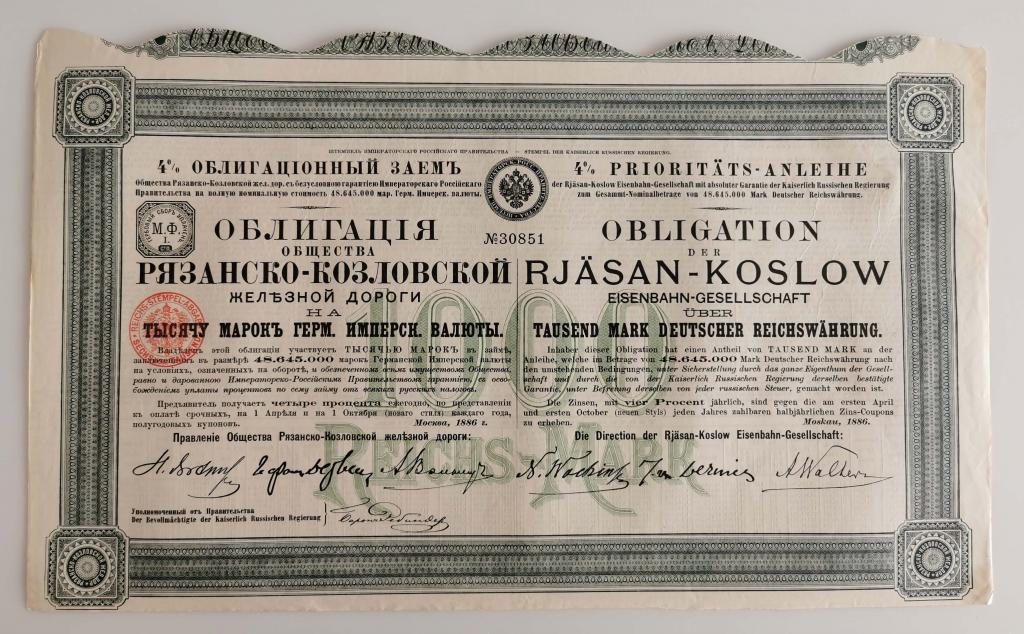 ШТЕМПЕЛЬ ИМПЕРАТОРСКАГО РОССІЙСКАГО ПРАВИТЕЛЬСТВА — STEMPEL DER KAISERLICH RUSSISCHEN REGIERUNG.
4% ОБЛИГАЦІОННЫЙ ЗАЕМЪ
Общества Рязанско-Козловской жел. дор. съ безусловною гарантіею Императорскаго Россійскаго
Правительства на полную номинальную стоимость 48.645.000 мар. Герм. Имперск. валюты.
М.Ф.
ОБЛИГАЦІЯ
ОБЩЕСТВА
РЯЗАНСКО-КОЗЛОВСКОЙ
ЖЕЛѢЗНОЙ ДОРОГИ
НА
ТЫСЯЧУ МАРОКЪ ГЕРМ. ИМПЕРСК. ВАЛЮТЫ.
Владѣлецъ этой облигаціи участвуетъ ТЫСЯЧЬЮ МАРОКЪ въ займѣ,
заключенномъ въ размѣрѣ 48.645.000 марокъ Германской Имперской валюты
на условіяхъ, означенныхъ на оборотѣ, и обезпеченномъ всѣмъ имуществомъ Общества,
равно и дарованною Императорско-Россійскимъ Правительствомъ гарантіею съ осво-
божденіемъ уплаты процентовъ по сему займу отъ всякихъ русскихъ налоговъ.
Предъявитель получаетъ четыре процента ежегодно, по представленіи
къ оплатѣ срочныхъ, на 1 Апрѣля и на 1 Октября (новаго стиля) каждаго года,
полугодовыхъ купоновъ. Москва, 1886 г.
Правленіе Общества Рязанско-Козловской желѣзной дороги:
Уполномоченный отъ Правительства
Der Bevollmächtigte der Kaiserlich Russischen Regierung
№30851
4% PRIORITÄTS-ANLEIHE
der Rjäsan-Koslow Eisenbahn-Gesellschaft mit absoluter Garantie der Kaiserlich Russischen Regierung
zum Gesammt-Nominalbetrage von 48.645.000 Mark Deutscher Reichswährung.
OBLIGATION
DER
RJÄSAN-KOSLOW
EISENBAHN-GESELLSCHAFT
ÜBER
TAUSEND MARK DEUTSCHER REICHSWÄHRUNG.
Inhaber dieser Obligation hat einen Antheil von TAUSEND MARK an der
Anleihe, welche im Betrage von 48.645.000 Mark Deutscher Reichswährung nach
den umstehenden Bedingungen, unter Sicherstellung durch das ganze Eigenthum der Gesell-
schaft und durch die von der Kaiserlich Russischen Regierung derselben bestätigte
Garantie, unter Befreiung derselben von jeder russischen Steuer, gemacht worden ist.
Die Zinsen, mit vier Procent jährlich, sind gegen die am ersten April
und ersten October (neuen Styls) jeden Jahres zahlbaren halbjährlichen Zins-Coupons
zu erheben. Moskau, 1886.
Die Direction der Rjäsan-Koslow Eisenbahn-Gesellschaft:
1000
REICHS-MARK